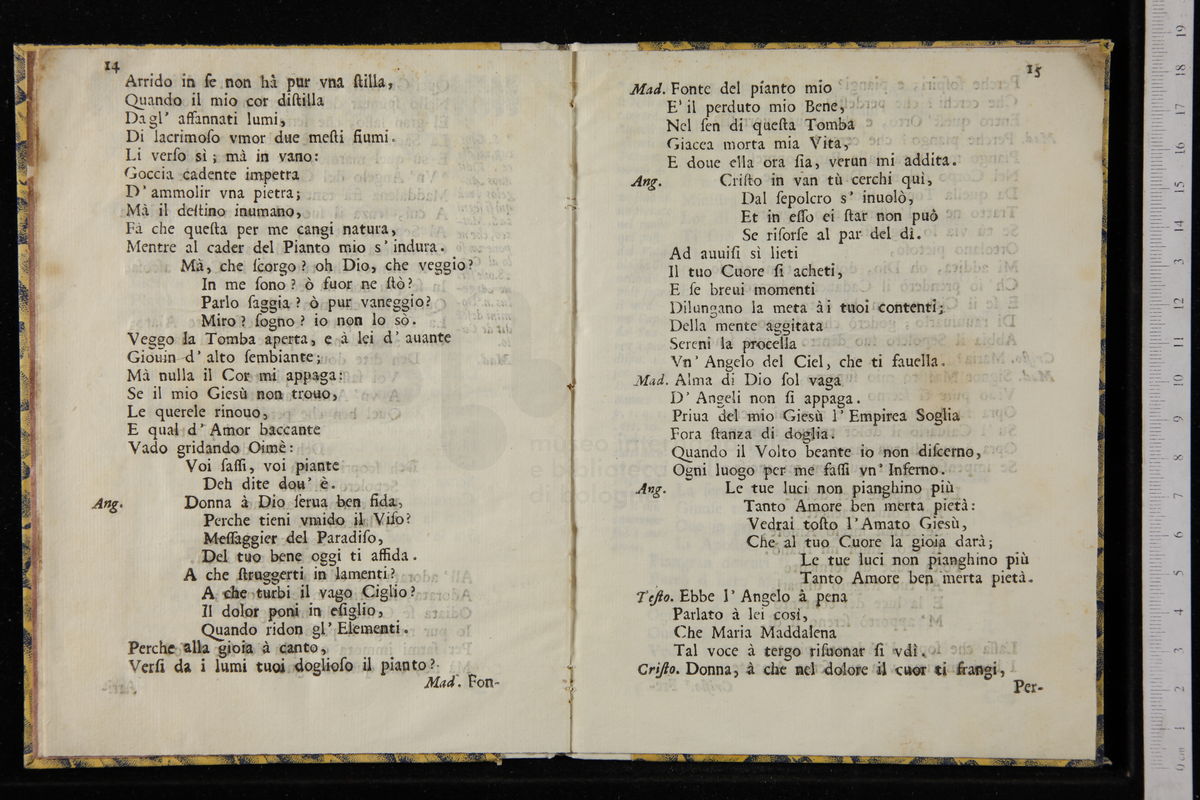 14
Arrido in ſe non hà pur vna ſtilla,
Quando il mio cor diſtilla
Dagl' affannati lumi,
Di lacrimoſo vmor due meſti fiumi.
Li verſo sì; mà in vano:
Goccia cadente impetra
D' ammolir vna pietra;
Mà il deſtino inumano,
Fà che queſta per me cangi natura,
Mentre al cader del Pianto mio s' indura.
Mà, che ſcorgo? oh Dio, che veggio?
In me ſono? ò fuor ne ſtò?
Parlo ſaggia? ò pur vaneggio?
Miro? ſogno? io non lo sò.
Veggo la Tomba aperta, e à lei d' auante
Giouin d' alto ſembiante;
Mà nulla il Cor mi appaga:
Se il mio Giesù non trouo,
Le querele rinouo,
E qual d' Amor baccante
Vado gridando Oimè:
Voi ſaſſi, voi piante
Deh dite dou' è.
Ang. Donna à Dio ſerua ben fida,
Perche tieni vmido il Viſo?
Meſſaggier del Paradiſo,
Del tuo bene oggi ti affida.
A che ſtruggerti in lamenti?
A che turbi il vago Ciglio?
Il dolor poni in eſiglio,
Quando ridon gl' Elementi.
Perche alla gioia à canto,
Verſi da i lumi tuoi doglioſo il pianto?
Mad. Fon-
15
Mad. Fonte del pianto mio
E' il perduto mio Bene,
Nel ſen di queſta Tomba
Giacea morta mia Vita,
E doue ella ora ſia, verun mi addita.
Ang. Criſto in van tù cerchi quì,
Dal ſepolcro s' inuolò,
Et in eſſo ei ſtar non può
Se riſorſe al par del dì.
Ad auuiſi sì lieti
Il tuo Cuore ſi acheti,
E ſe breui momenti
Dilungano la meta à i tuoi contenti;
Della mente aggitata
Sereni la procella
Vn' Angelo del Ciel, che ti fauella.
Mad. Alma di Dio ſol vaga
D' Angeli non ſi appaga.
Priua del mio Giesù l' Empirea Soglia
Fora ſtanza di doglia.
Quando il Volto beante io non diſcerno,
Ogni luogo per me faſſi vn' Inferno.
Ang. Le tue luci non pianghino più
Tanto Amore ben merta pietà:
Vedrai toſto l' Amato Giesù,
Che al tuo Cuore la gioia darà;
Le tue luci non pianghino più
Tanto Amore ben merta pietà.
Teſto. Ebbe l' Angelo à pena
Parlato à lei così,
Che Maria Maddalena
Tal voce à tergo riſuonar ſi vdì.
Criſto. Donna, à che nel dolore il cuor ti frangi,
Per-